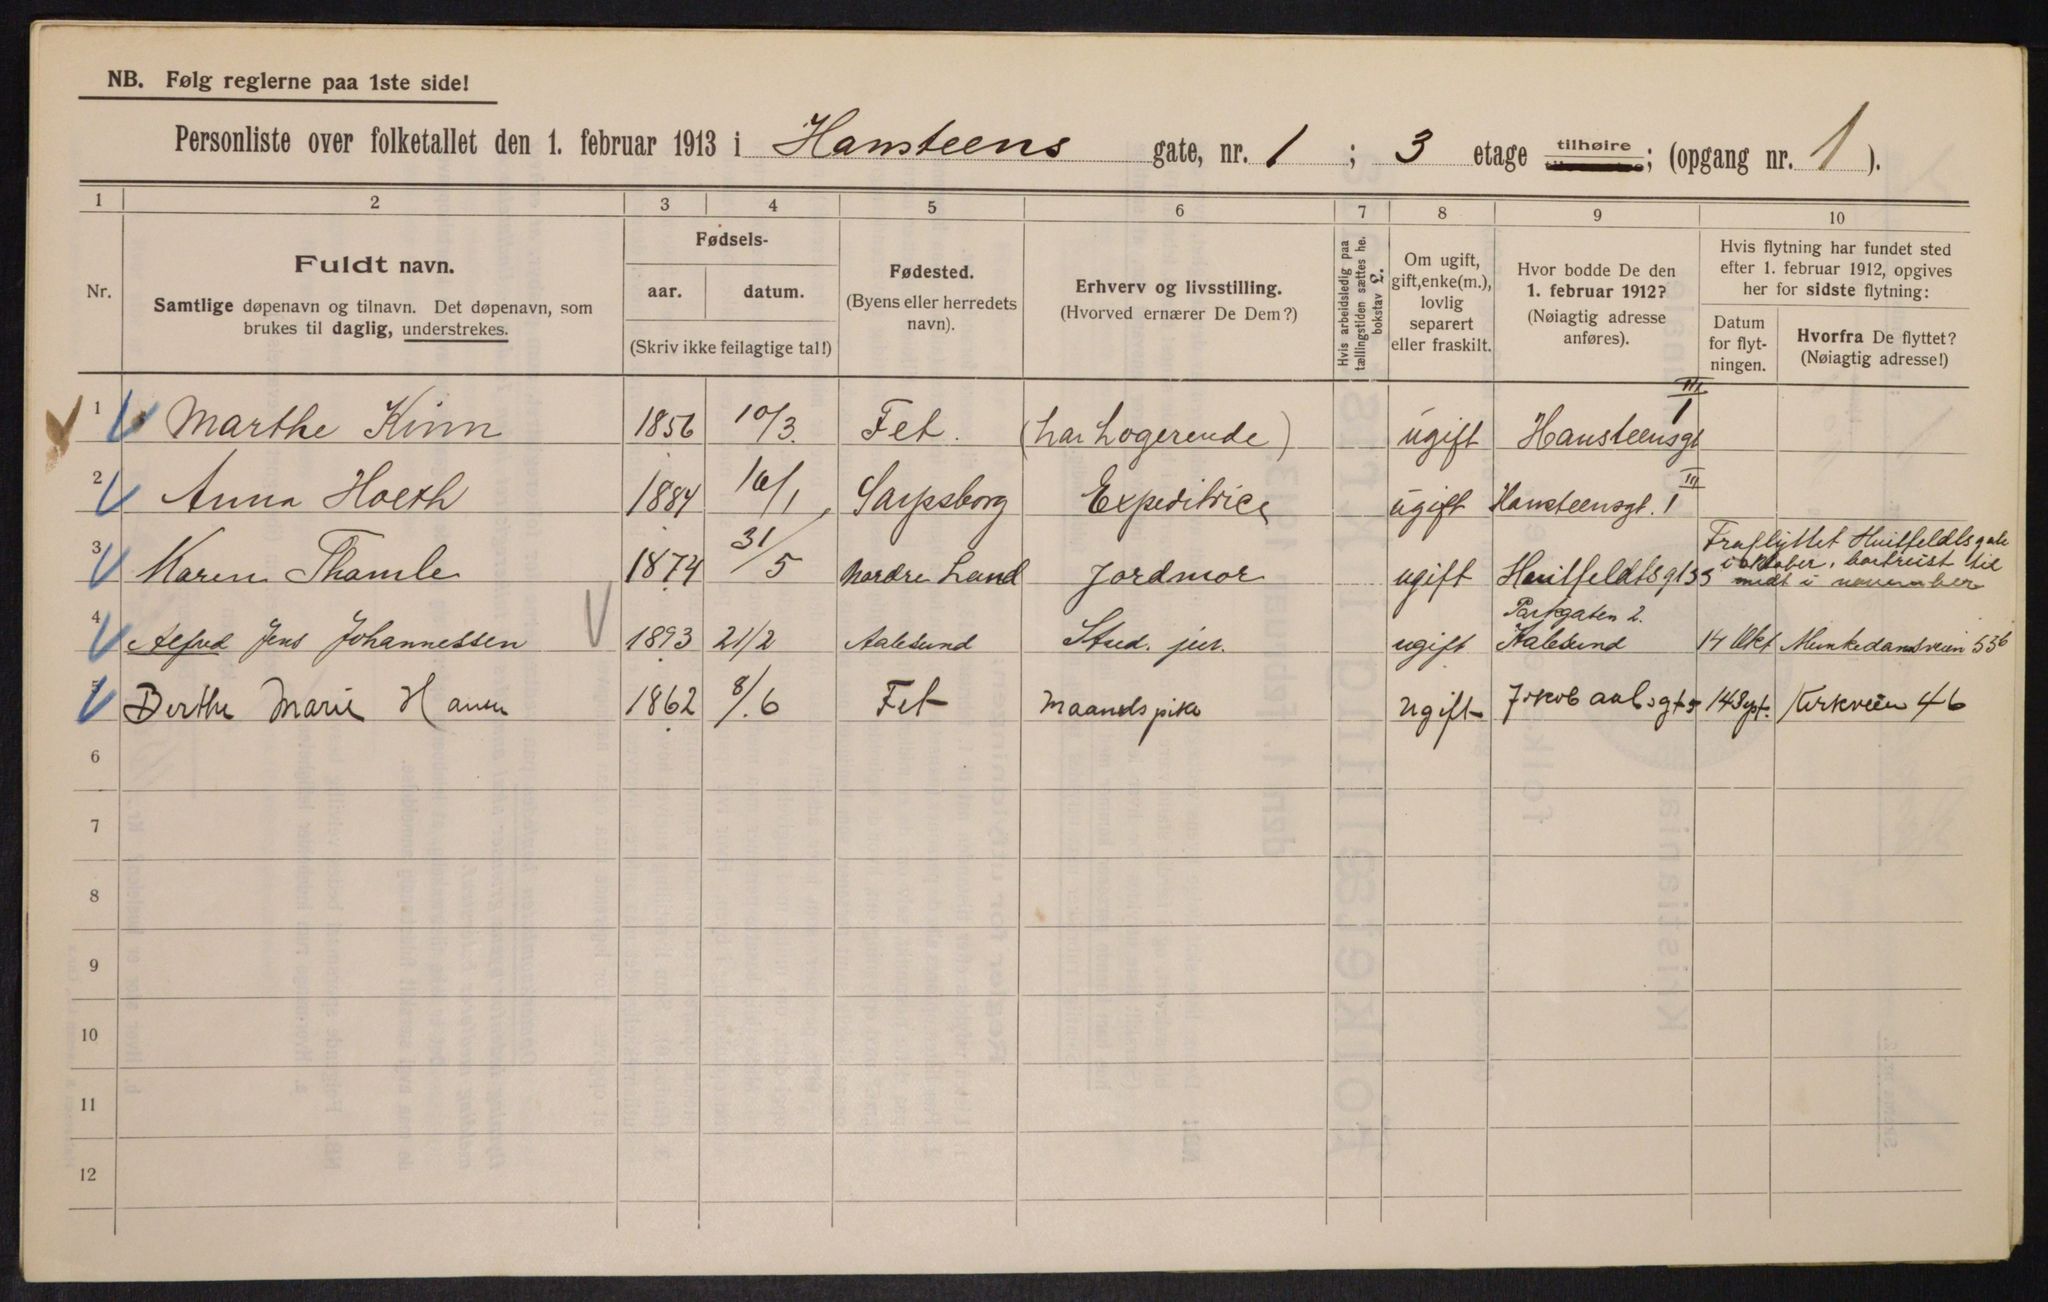 NB. Følg reglerne paa 1ste side!
Personliste over folketallet den 1. februar 1913 i Hansteens gate, nr. 1 ; 3 etage tilhøire ; (opgang nr. 1 ).
1 2 3 4 5 6 7 8 9 10
Nr.
Fuldt navn.
Samtlige døpenavn og tilnavn. Det døpenavn, som
brukes til daglig, understrekes.
Fødsels-
aar. datum.
(Skriv ikke feilagtige tal!)
Fødested.
(Byens eller herredets
navn).
Erhverv og livsstilling.
(Hvorved ernærer De Dem?)
Hvis arbeidsledig paa
tællingstiden sættes he.
bokstav L.
Om ugift,
gift, enke(m.),
lovlig
separert
eller fraskilt.
Hvor bodde De den
1. februar 1912?
(Nøiagtig adresse
anføres).
Hvis flytning har fundet sted
efter 1. februar 1912, opgives
her for sidste flytning:
Datum
for flyt-
ningen.
Hvorfra De flyttet?
(Nøiagtig adresse!)
1 Marthe Kinn 1856 10/3. Fet. (har Logerende) ugift Hansteensgt 1 III
2 Anna Hoeth 1884 16/1 Sarpsborg Expeditrice ugift Hansteensgt. 1 III
3 Karen Thamle 1874 31/5 Nordre Land Jordmor ugift Huitfeldtsgt 33 Fraflyttet Huitfeldtsgate
i oktober, bortreist til
midt i november
4 Alfred Jens Johannessen 1893 21/2 Aalesund Stud. jur. ugift Parkgaten 2.
Aalesund 14 Okt Munkedamsveien 53b
5 Berthe Marie Hansen 1862 8/6 Fet Maanedspike ugift Jakob aalsgt 5 14 Sept. Kirkveien 46
6
7
8
9
10
11
12